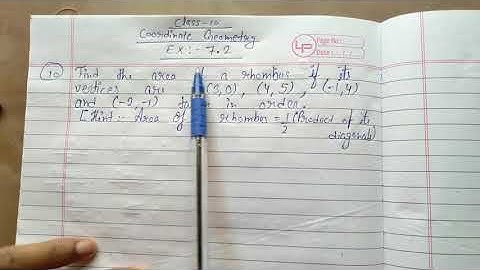 Class-10
Coordinate Geometry
Ex:- 7.2
Page No.:
Date:
(10) Find the area of a rhombus if its
vertices are (3,0), (4,5), (-1,4)
and (-2,-1) in order.
[Hint:- Area of rhombus = 1/2 (Product of its
diagonals)